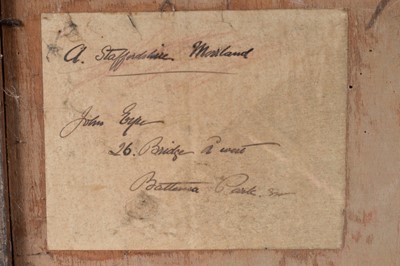 A. Staffordshire Moorland
John Eyre
26. Bridge Rd west
Battersea Park. SW